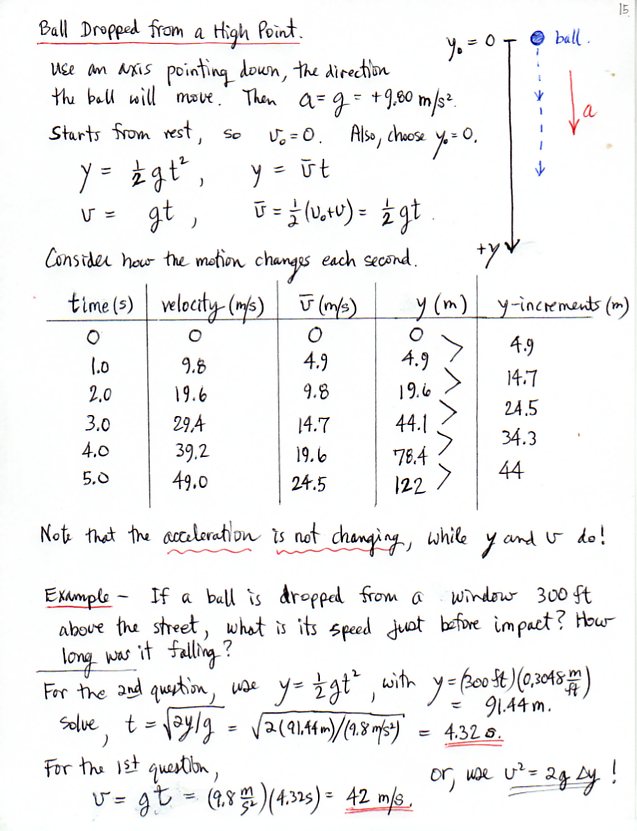 15
Ball Dropped from a High Point.
y₀ = 0
ball.
Use an axis pointing down, the direction
the ball will move. Then a = g = +9.80 m/s².
a
Starts from rest, so v₀ = 0. Also, choose y₀ = 0.
y = ½ g t², y = v̄ t
v = gt, v̄ = ½(v₀+v) = ½ gt.
+y
Consider how the motion changes each second.
time (s) velocity (m/s) v̄ (m/s) y (m) y-increments (m)
0 0 0 0
4.9
1.0 9.8 4.9 4.9
14.7
2.0 19.6 9.8 19.6
24.5
3.0 29.4 14.7 44.1
34.3
4.0 39.2 19.6 78.4
44
5.0 49.0 24.5 122
Note that the acceleration is not changing, while y and v do!
Example – If a ball is dropped from a window 300 ft
above the street, what is its speed just before impact? How
long was it falling?
For the 2nd question, use y = ½ g t², with y = (300 ft)(0.3048 m/ft)
= 91.44 m.
solve, t = √2y/g = √2(91.44 m)/(9.8 m/s²) = 4.32 s.
For the 1st question, or, use v² = 2g Δy !
v = gt = (9.8 m/s²)(4.32s) = 42 m/s.